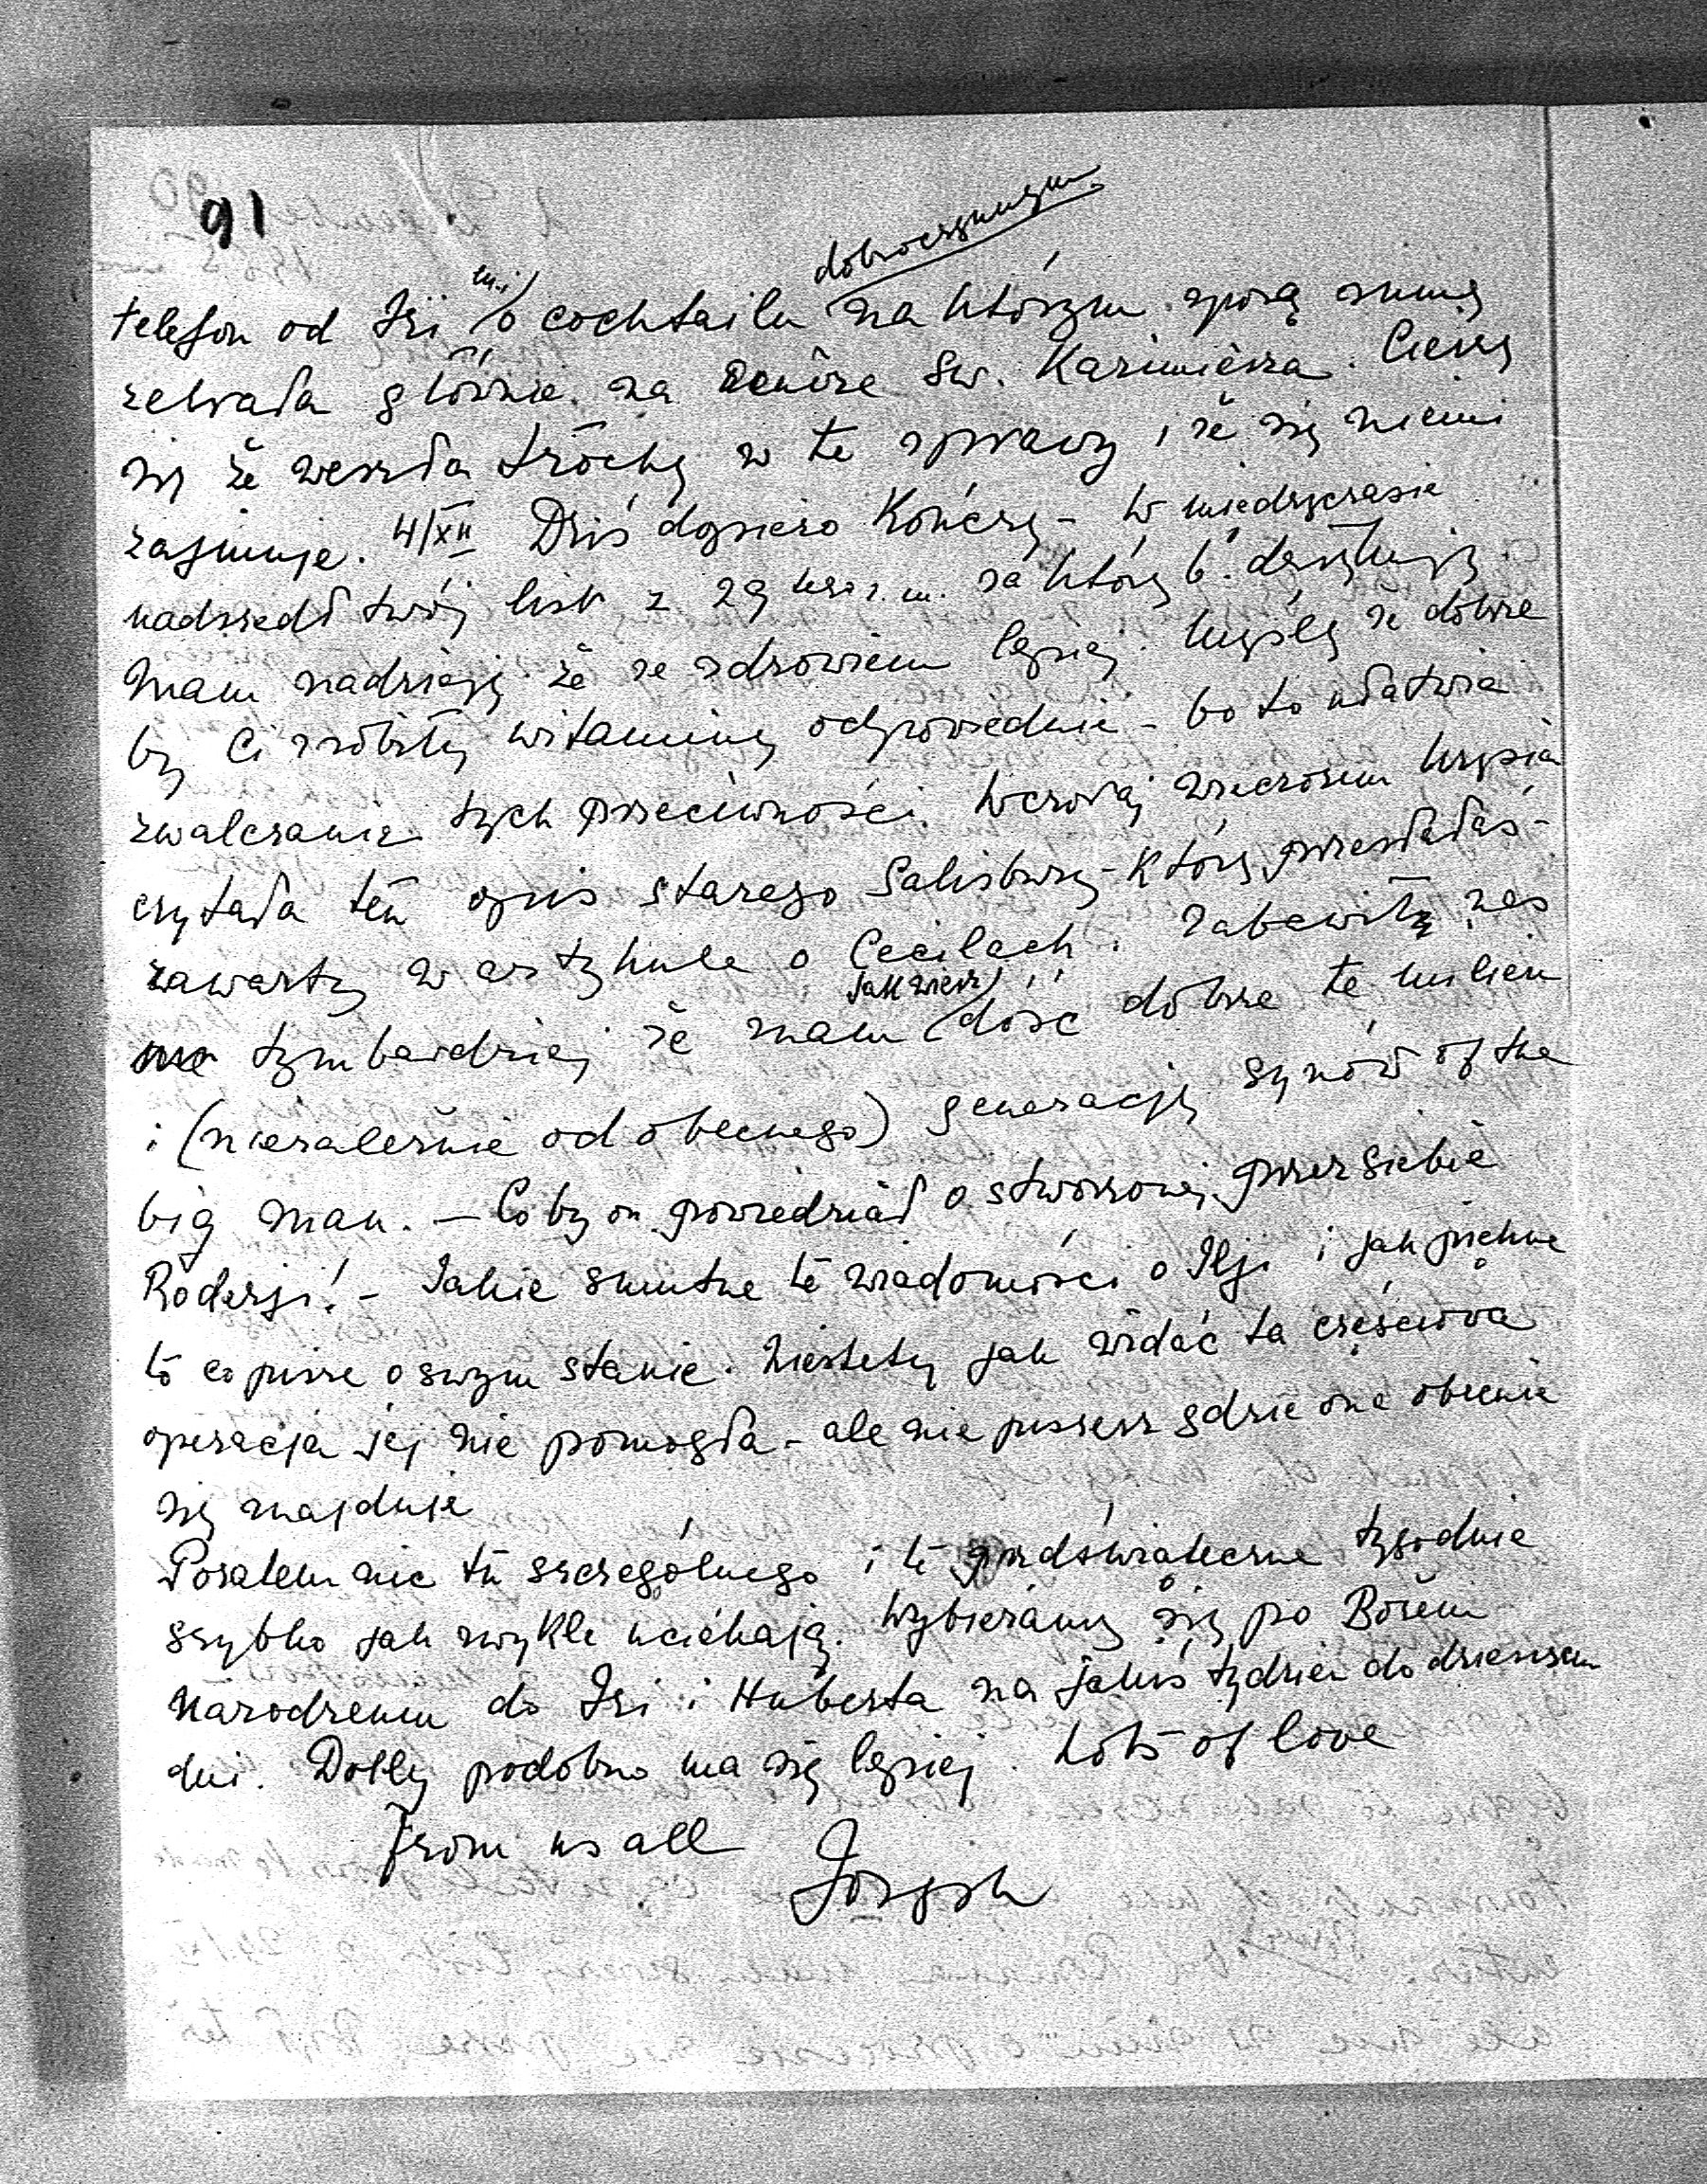 91
dobroczynnym
telefon od Isi m.i. o cocktailu na którym sporą sumę
zebrała głównie na œuvre św. Kazimierza. Cieszę
się że weszła trochę w te sprawy i że się niemi
zajmuje. 4/XII Dziś dopiero kończę – W międzyczasie
nadszedł twój list z 29 za który b. dziękuję.
Mam nadzieję że ze zdrowiem lepiej. Myślę że dobrze
by Ci zrobiły witaminy odpowiednie – bo to ułatwia
zwalczanie tych przeciwności. Wczoraj wieczorem Krysia
czytała ten opis starego Salisbury – który przesłałaś –
zawarty w artykule o Cecilach. Zabawiły nas
tymbardziej że znam (jak wiesz) dość dobrze te milieu
i (niezależnie od obecnego) generację synów of the
big man. – Co by on powiedział o stworzonej przez siebie
Rodezji! – Jakie smutne te wiadomości o Ilji i jak piękne
to co pisze o swym stanie. Niestety jak widać ta częściowa
operacja jej nie pomogła – ale nie piszesz gdzie ona obecnie
się znajduje
Pozatem nic tu szczególnego i te przedświąteczne tygodnie
szybko jak zwykle uciekają. Wybieramy się po Bożem
Narodzeniu do Isi i Huberta na jakiś tydzień do dziesięciu
dni. Dolly podobno ma się lepiej. Lots of love
from us all Joseph